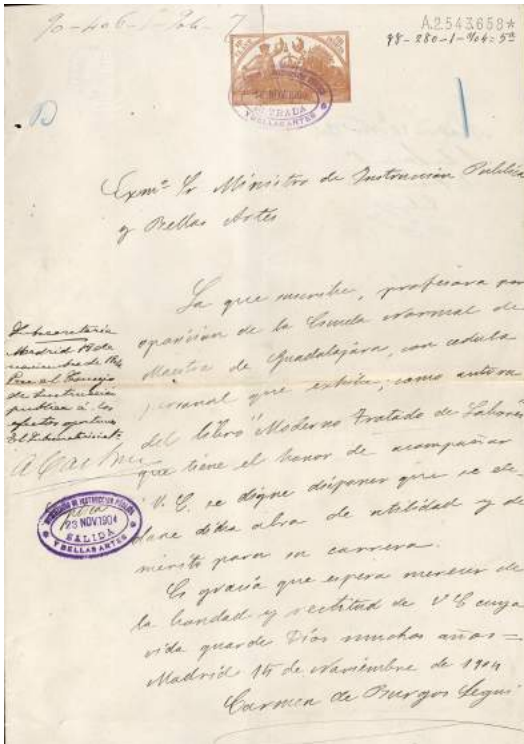 A.2543.658*
98-280-1-904=5ª
Exmº Sr Ministro de Instrucción Publica
y Bellas Artes
La que suscribe, profesora por
oposición de la Escuela Normal de
Maestras de Guadalajara, con cedula
personal que exhibe, como autora
del libro "Moderno Tratado de Labores"
que tiene el honor de acompañar
á V. E. se digne disponer que se de
clare dicha obra de utilidad y de
mérito para su carrera.
Es gracia que espera merecer de
la bondad y rectitud de V E cuya
vida guarde Dios muchos años =
Madrid 15 de Noviembre de 1904
Carmen de Burgos Seguí
Subsecretaria
Madrid 18 de
noviembre de 1904
Pase al Consejo
de Instrucción
publica á los
efectos oportunos
El Subsecretario
INSTRUCCION PUBLICA
NOV 1904
ENTRADA
Y BELLAS ARTES
DE INSTRUCCION PUBLICA
23 NOV 1904
SALIDA
Y BELLAS ARTES